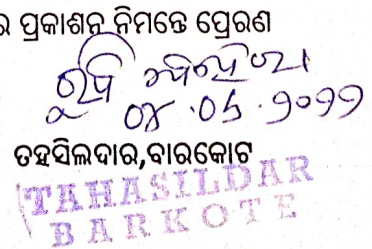 ର ପ୍ରକାଶନ ନିମନ୍ତେ ପ୍ରେରଣ
ରୁବି
୦୪.୦୫.୨୦୨୨
ତହସିଲଦାର,ବାରକୋଟ
TAHASILDAR
BARKOTE